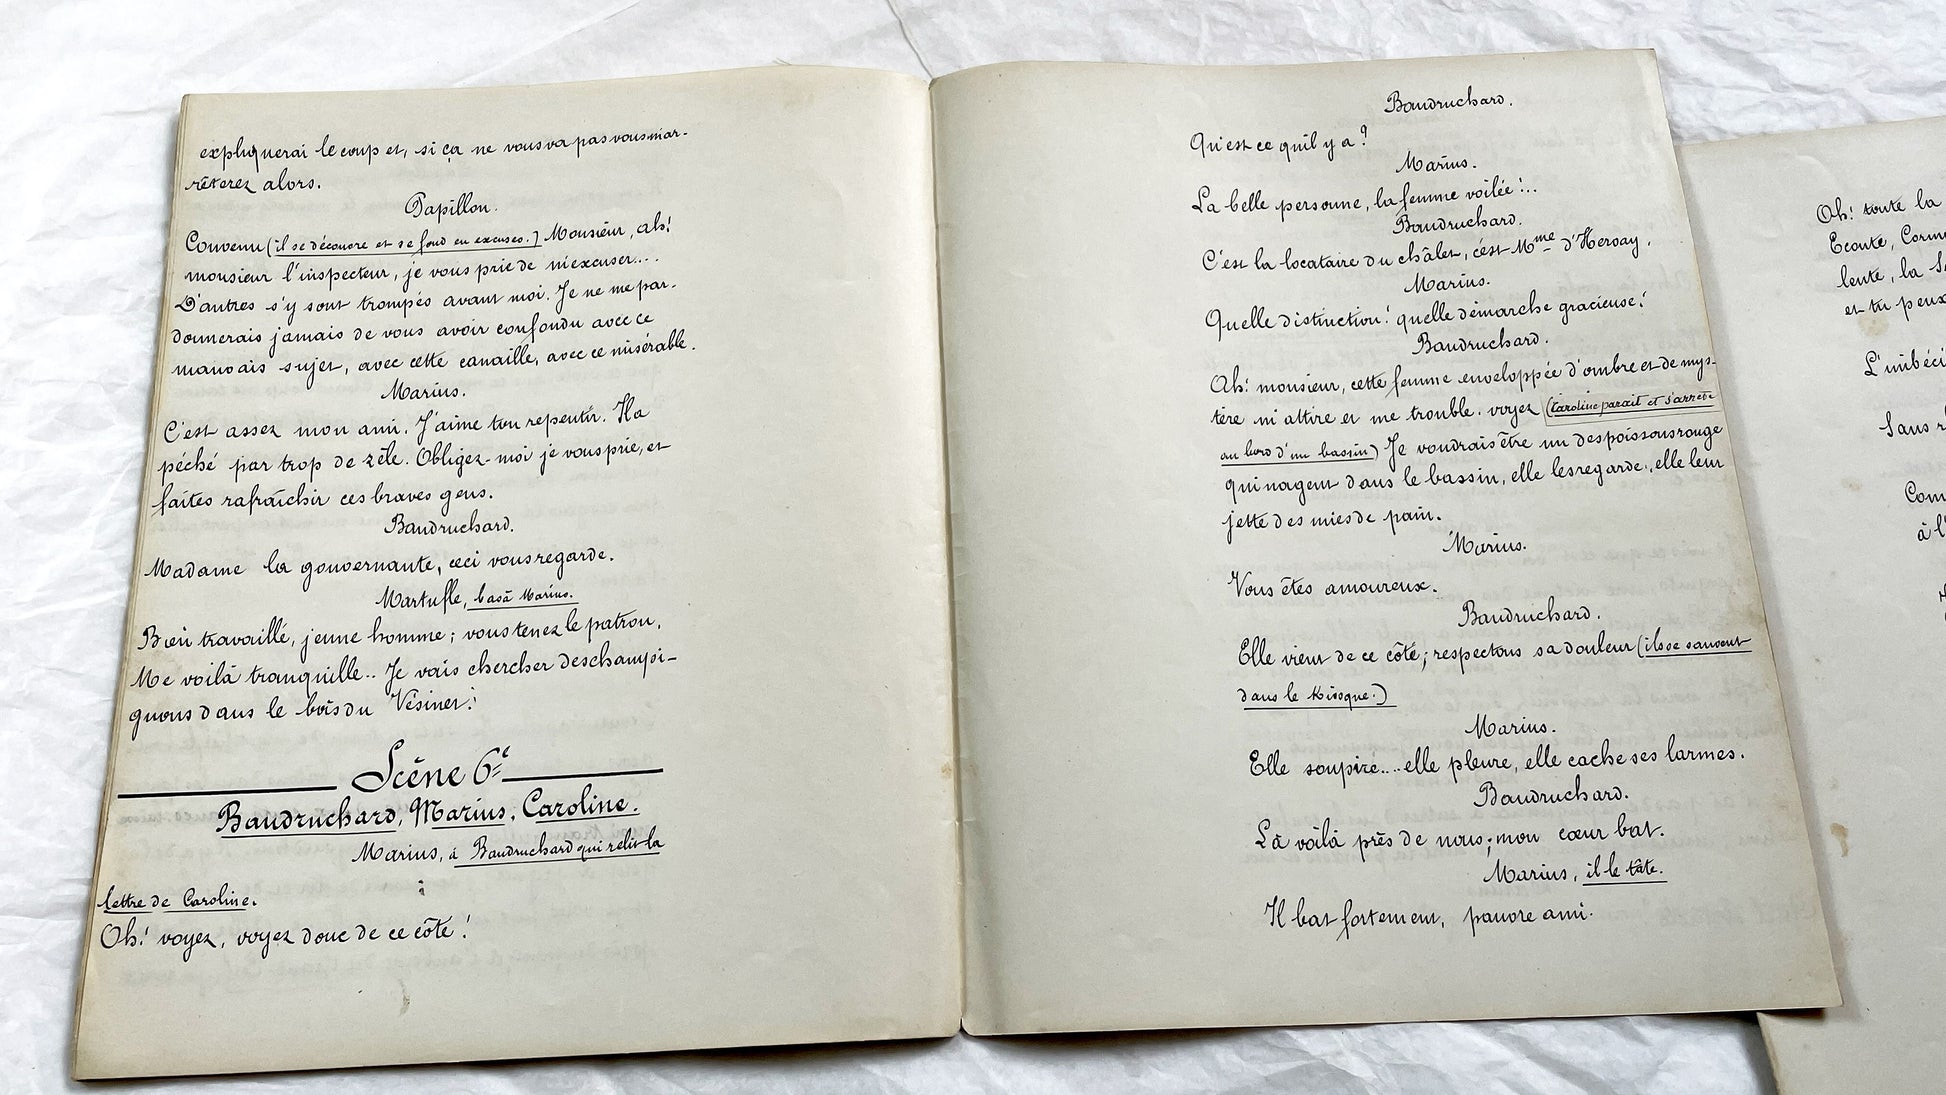 expliquerai le coup et, si ça ne vous va pas vous m'ar-
rêterez alors.
Papillon.
Convenu (il se découvre et se fond en excuses.) Monsieur, ah!
monsieur l'inspecteur, je vous prie de m'excuser....
D'autres s'y sont trompés avant moi. Je ne me par-
donnerais jamais de vous avoir confondu avec ce
mauvais sujet, avec cette canaille, avec ce misérable.
Marius.
C'est assez mon ami. J'aime ton repentir. Il a
péché par trop de zèle. Obligez-moi je vous prie, et
faites rafraîchir ces braves gens.
Baudruchard.
Madame la gouvernante, ceci vous regarde.
Martufle, bas à Marius.
Bien travaillé, jeune homme; vous tenez le patron.
Me voilà tranquille... Je vais chercher des champi-
gnons dans le bois du Vésinet!
Scène 6e
Baudruchard, Marius, Caroline.
Marius, à Baudruchard qui relit la
lettre de Caroline.
Oh! voyez, voyez donc de ce côté!
Baudruchard.
Qu'est ce qu'il y a?
Marius.
La belle personne, la femme voilée!..
Baudruchard.
C'est la locataire du châlet, c'est Mme d'Hersay.
Marius.
Quelle distinction! quelle démarche gracieuse!
Baudruchard.
Ah! monsieur, cette femme enveloppée d'ombre et de mys-
tère m'attire et me trouble. voyez (Caroline parait et s'arrête
au bord d'un bassin) Je voudrais être un des poissons rouge
qui nagent dans le bassin, elle les regarde, elle leur
jette des mies de pain.
Marius.
Vous êtes amoureux.
Baudruchard.
Elle vient de ce côté; respectons sa douleur (ils se sauvent
dans le kiosque.)
Marius.
Elle soupire....elle pleure, elle cache ses larmes.
Baudruchard.
La voilà près de nous; mon cœur bat.
Marius, il le tâte.
Il bat fortement, pauvre ami.
Oh! toute la
Ecoute,
lente, la
et tu peux
L'imbéci
Sans
Com
à l'